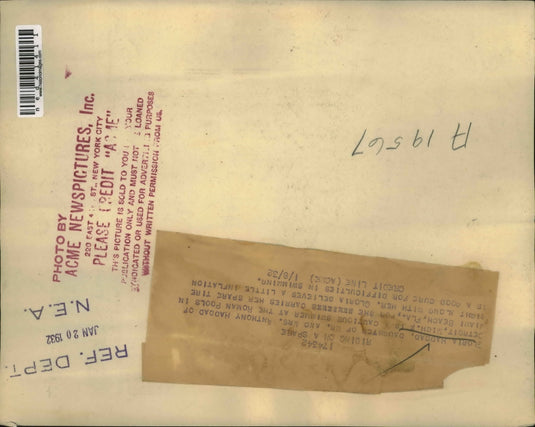 PHOTO BY
ACME NEWSPICTURES, Inc.
220 EAST 4 ST., NEW YORK CITY
PLEASE CREDIT "ACME"
THIS PICTURE IS SOLD TO YOU YOUR
PUBLICATION ONLY AND MUST NOT LOANED
SYNDICATED OR USED FOR ADVERTI PURPOSES
WITHOUT WRITTEN PERMISSION FROM US.
A 19567
N.E.A.
JAN 20 1932
REF. DEPT.
174342
RIDING ON SPARE
GLORIA HADDAD, DAUGHTER OF MR. AND MRS. ANTHONY HADDAD OF
DETROIT, MICH., A CAUTIOUS SWIMMER AT THE ROMAN POOLS IN
MIAMI BEACH, FLA., FOR SHE CARRIES HER SPARE TIRE
RIGHT ALONG WITH HER. GLORIA BELIEVES A LITTLE INFLATION
IS A GOOD CURE FOR DIFFICULTIES IN SWIMMING.
CREDIT LINE (ACME) 1/8/32